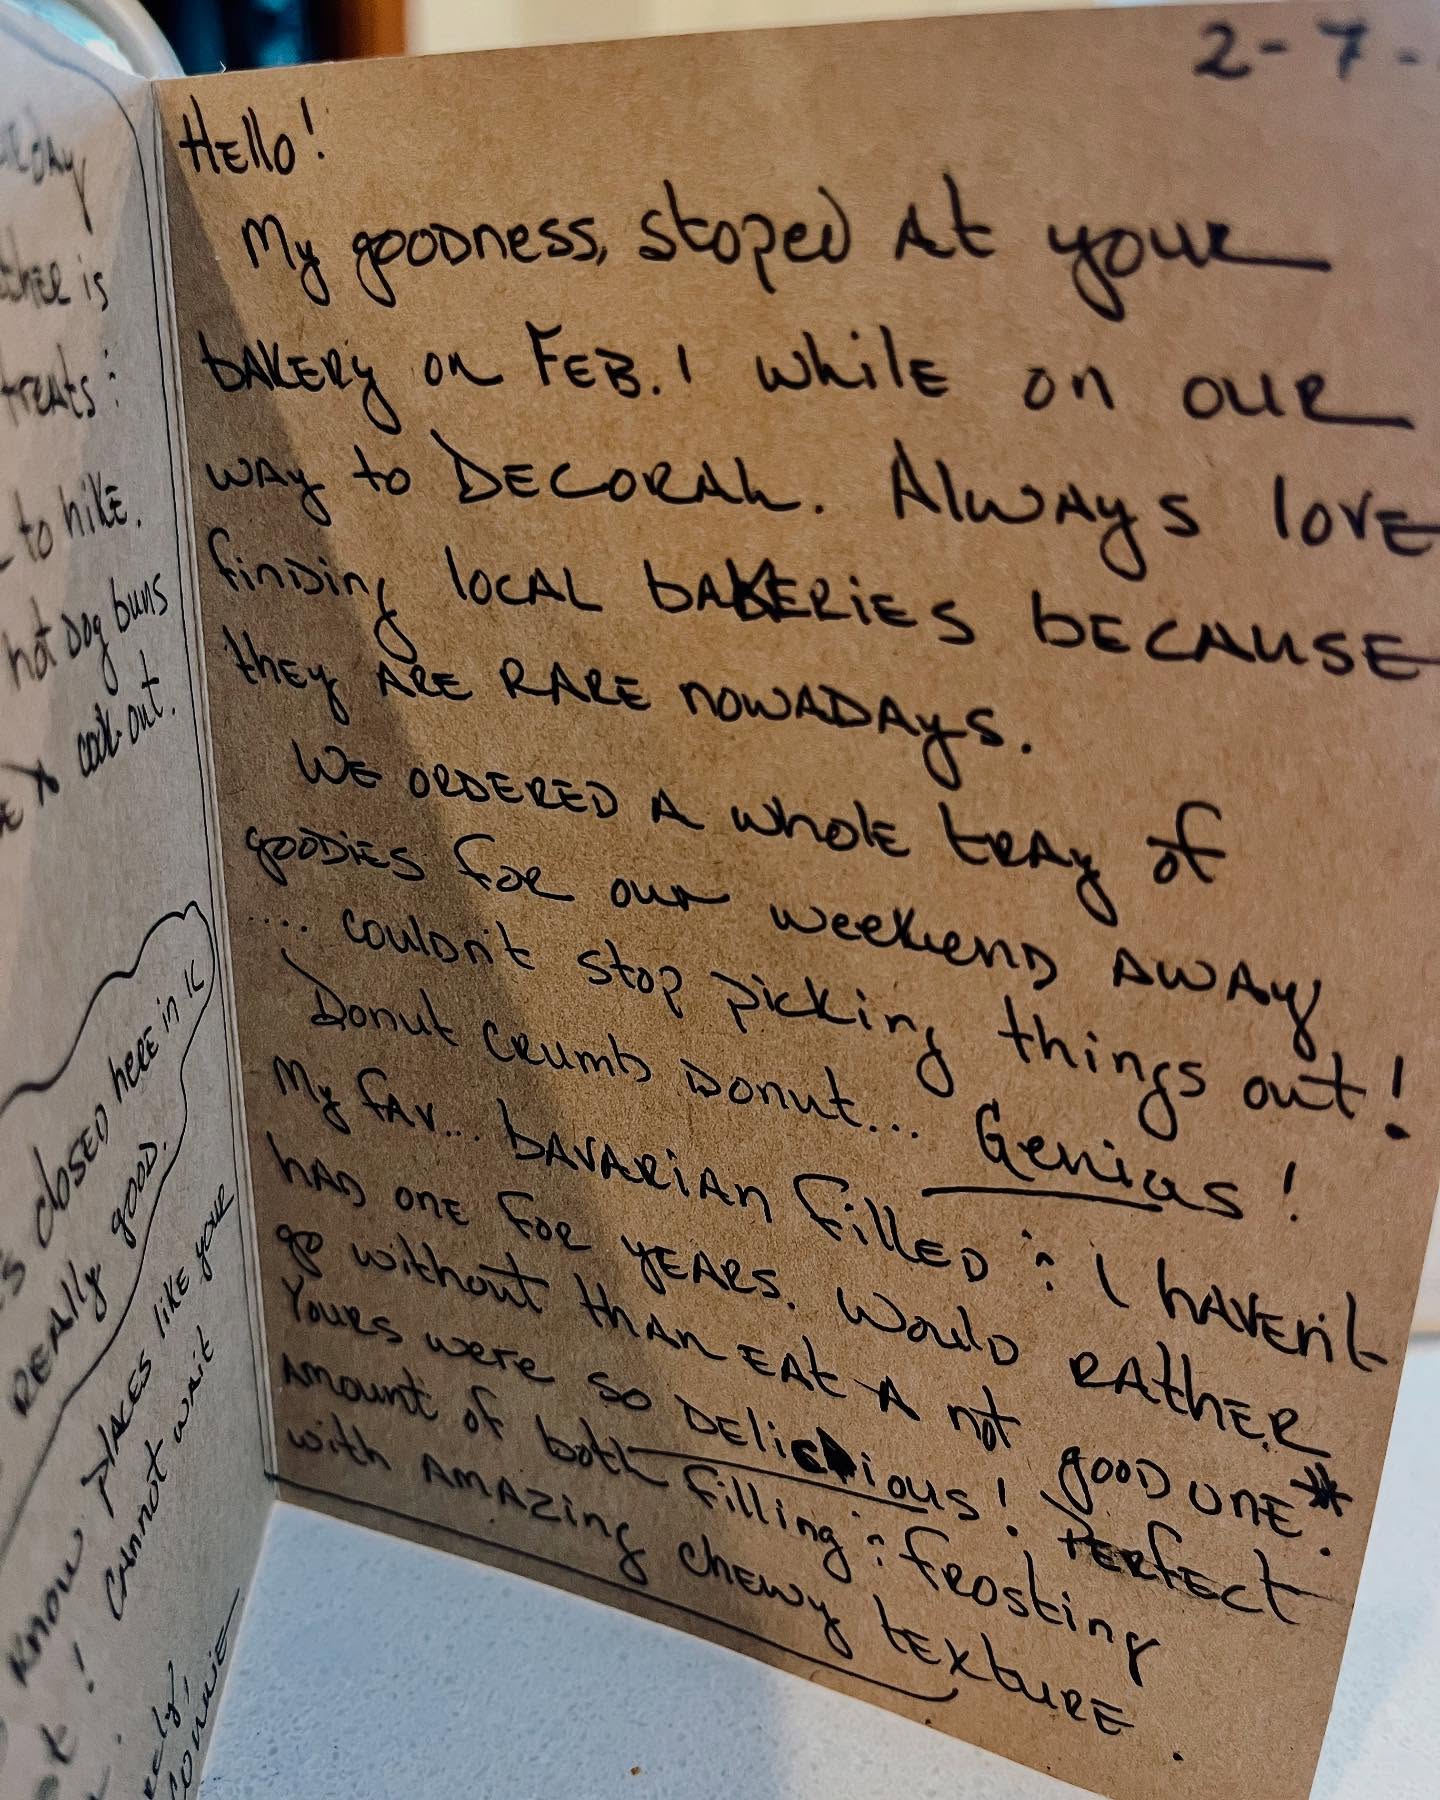 2-7-
Hello!
My goodness, stoped at your
bakery on Feb. 1 while on our
way to Decorah. Always love
finding local bakeries because
they are rare nowadays.
We ordered a whole tray of
goodies for our weekend away
.... couldn't stop picking things out!
Donut crumb donut... Genius!
My fav... bavarian filled : I haven't
had one for years. Would rather
go without than eat a not good one*.
Yours were so delicious! Perfect
amount of both filling : frosting
with amazing chewy texture.
ther is
treats :
to hike.
hot dog buns
cook-out.
closed here in IC
really good.
know places like your
! Cannot wait